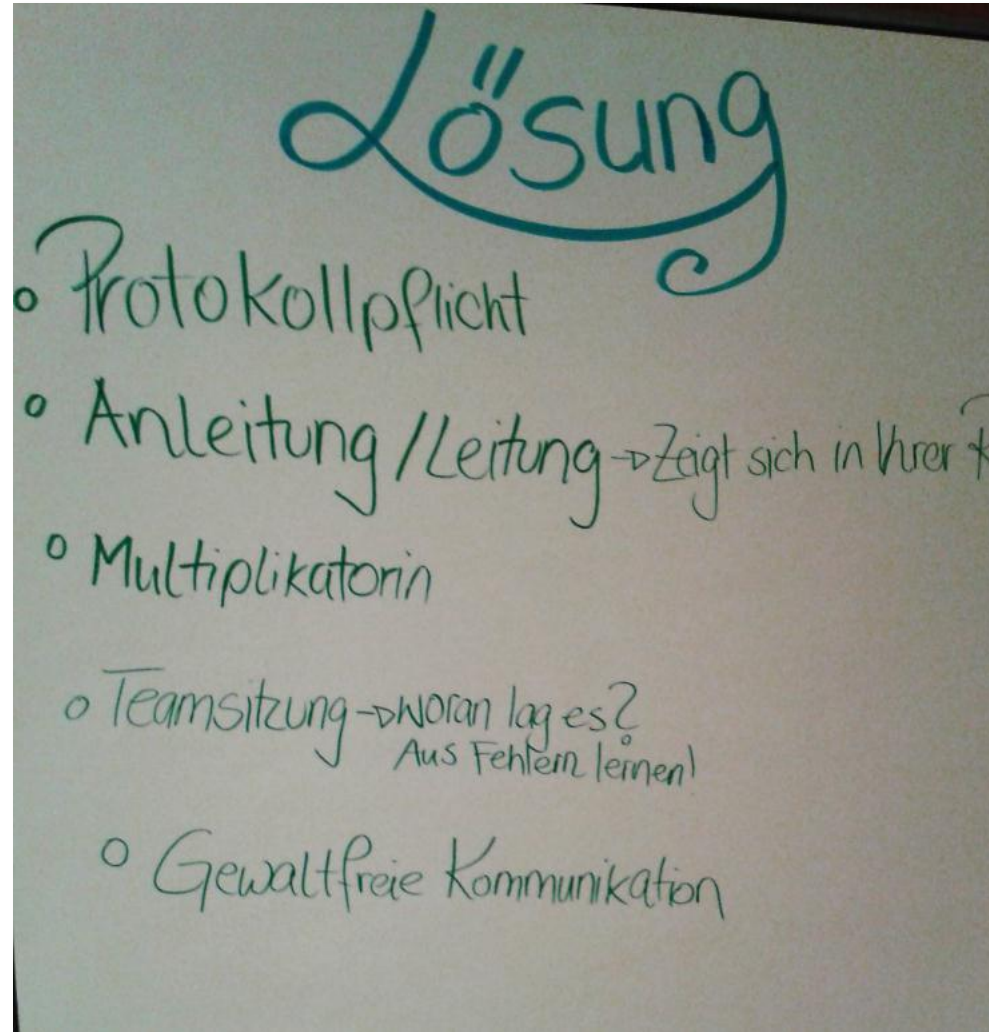 Lösung
o Protokollpflicht
o Anleitung/Leitung → Zeigt sich in Ihrer
o Multiplikatorin
o Teamsitzung → woran lag es?
Aus Fehlern lernen!
o Gewaltfreie Kommunikation